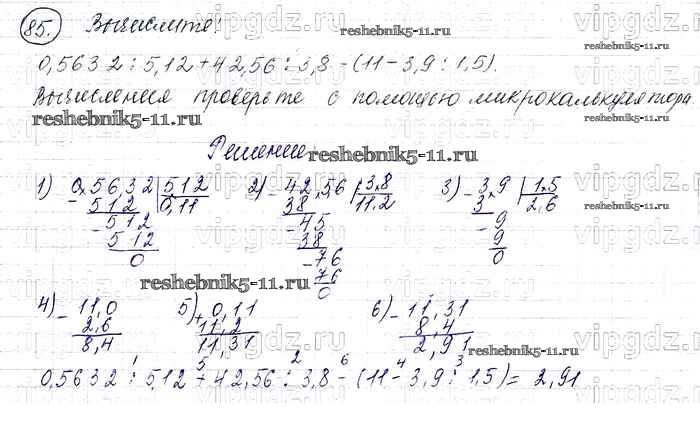 85. Вычислите!
reshebnik5-11.ru
0,5632 : 5,12 + 42,56 : 3,8 - (11 - 3,9 : 1,5).
Вычисления проверьте с помощью микрокалькулятора
reshebnik5-11.ru
Решение:
reshebnik5-11.ru
1) 0,5632 | 512 2) 42,56 | 3,8 3) 3,9 | 1,5
512 0,11 38 11,2 3 2,6
512 45 9
512 38 9
0 76 0
76
0
reshebnik5-11.ru
4) - 11,0 5) + 0,11 6) - 11,31
2,6 11,2 8,4
8,4 11,31 2,91
reshebnik5-11.ru
1 5 2 6 4 3
0,5632 : 5,12 + 42,56 : 3,8 - (11 - 3,9 : 1,5) = 2,91
vipgdz.ru